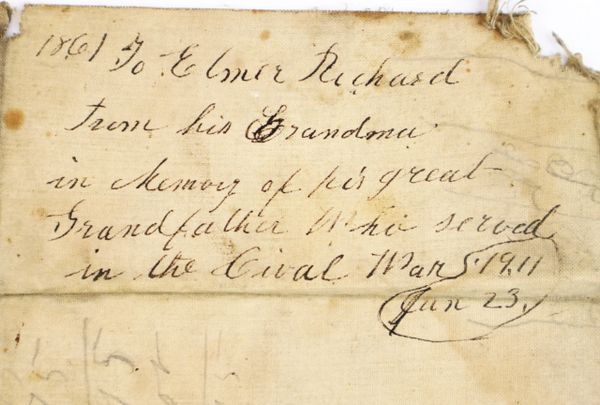 1861 To Elmer Richard
from his Grandma
in Memory of his great
Grandfather Who served
in the Cival War 1911
Jun 23